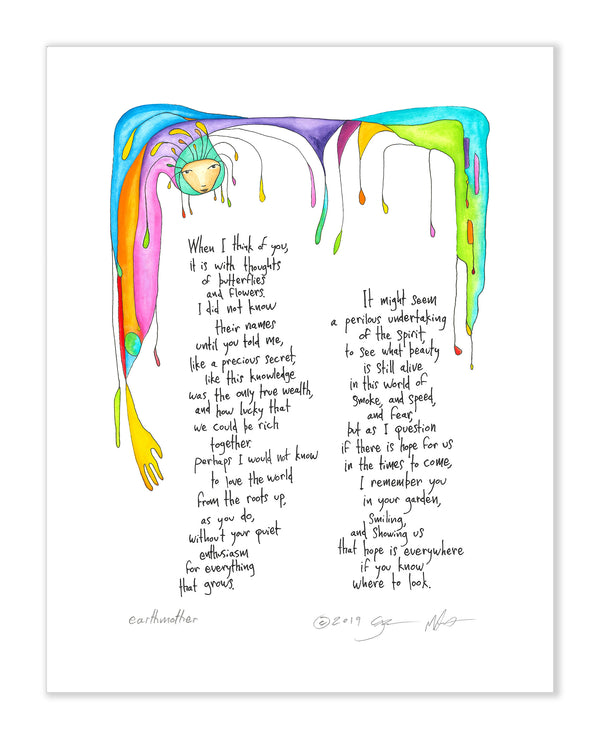 When I think of you,
it is with thoughts
of butterflies
and flowers.
I did not know
their names
until you told me,
like a precious secret,
like this knowledge
was the only true wealth,
and how lucky that
we could be rich
together.
perhaps I would not know
to love the world
from the roots up,
as you do,
without your quiet
enthusiasm
for everything
that grows.
It might seem
a perilous undertaking
of the spirit,
to see what beauty
is still alive
in this world of
smoke, and speed,
and fear,
but as I question
if there is hope for us
in the times to come,
I remember you
in your garden,
smiling,
and showing us
that hope is everywhere
if you know
where to look.
earthmother
©2019